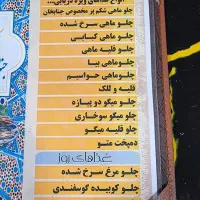 انواع غذاهای ویژه دریایی...
چلو ماهی شکم پر مخصوص جنابخان
چلو ماهی سرخ شده
چلو ماهی کبابی
چلو قلیه ماهی
چلوماهی بیا
چلوماهی حواسیم
قلیه و للک
چلو میگو دو پیازه
چلو میگو سوخاری
چلو قلیه میگو
دمپخت متو
غذاهای روز
چلو مرغ سرخ شده
چلو کوبیده گوسفندی